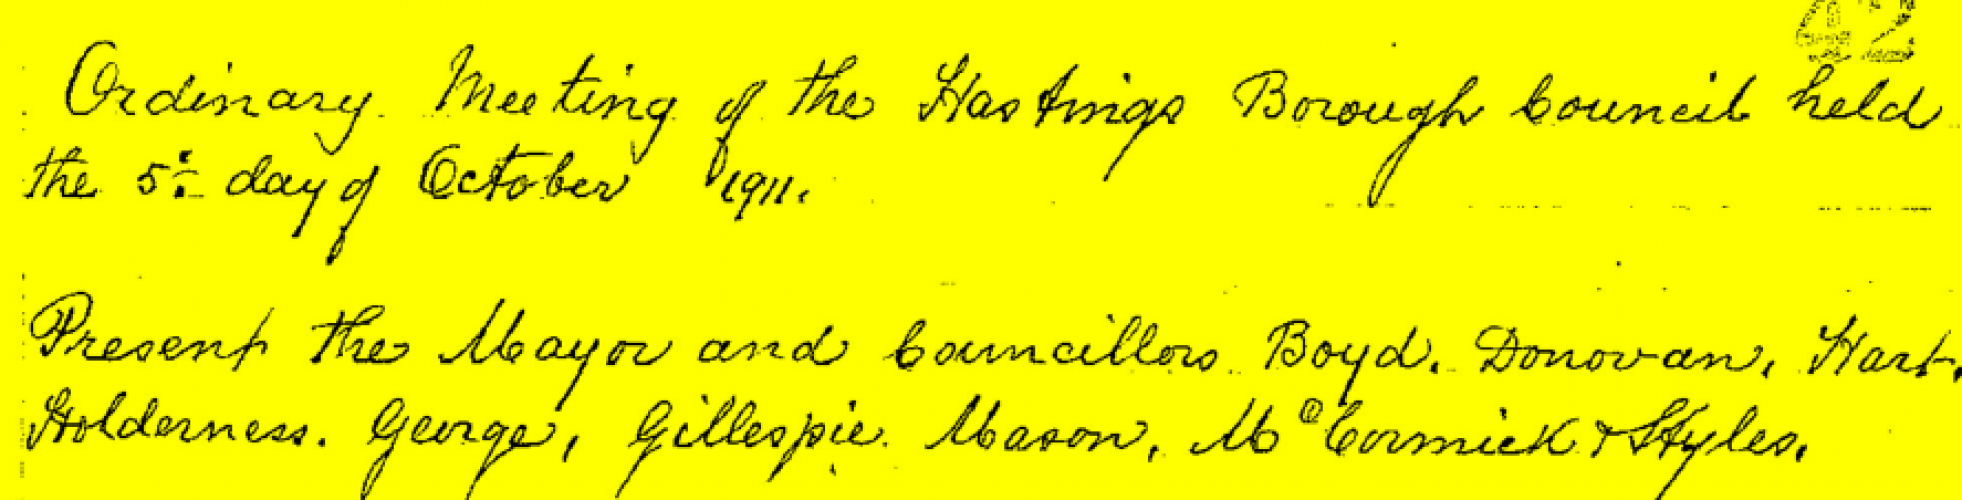 42
Ordinary Meeting of the Hastings Borough Council held
the 5th day of October 1911.
Present the Mayor and Councillors Boyd, Donovan, Hart,
Holderness, George, Gillespie, Mason, McCormick & Styles.